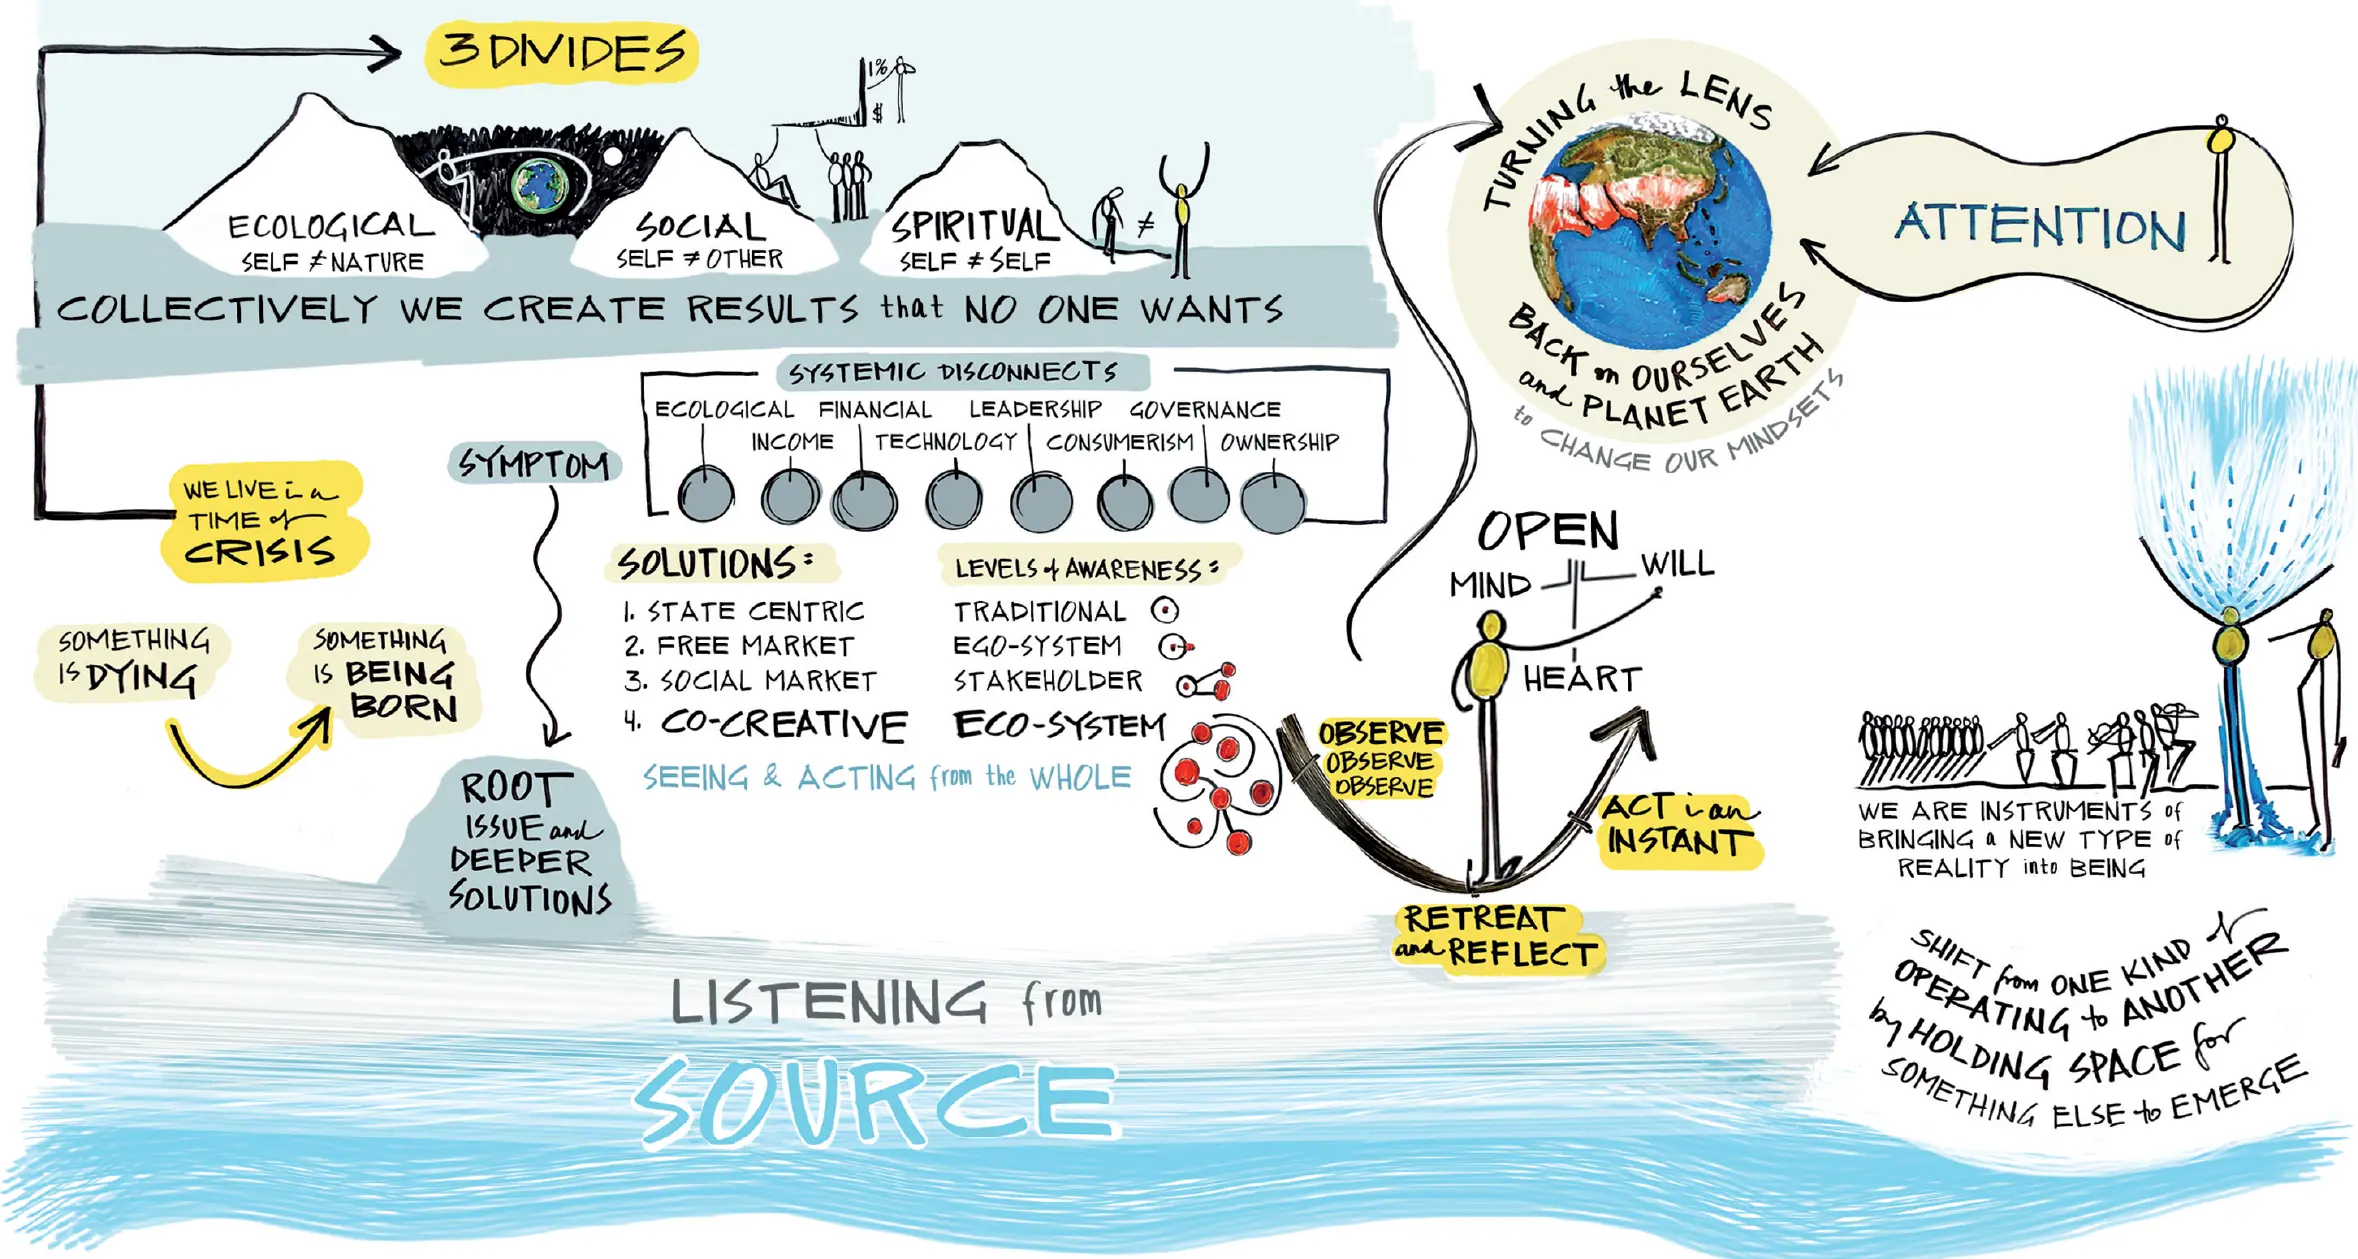 3 DIVIDES
1%
$
ECOLOGICAL
SELF ≠ NATURE
SOCIAL
SELF ≠ OTHER
SPIRITUAL
SELF ≠ SELF
≠
COLLECTIVELY WE CREATE RESULTS that NO ONE WANTS
WE LIVE in a
TIME of
CRISIS
SOMETHING
IS DYING
SOMETHING
IS BEING
BORN
SYMPTOM
ROOT
ISSUE and
DEEPER
SOLUTIONS
SYSTEMIC DISCONNECTS
ECOLOGICAL FINANCIAL LEADERSHIP GOVERNANCE
INCOME TECHNOLOGY CONSUMERISM OWNERSHIP
SOLUTIONS:
1. STATE CENTRIC
2. FREE MARKET
3. SOCIAL MARKET
4. CO-CREATIVE
LEVELS of AWARENESS:
TRADITIONAL
EGO-SYSTEM
STAKEHOLDER
ECO-SYSTEM
SEEING & ACTING from the WHOLE
TURNING the LENS
BACK on OURSELVES
and PLANET EARTH
to CHANGE OUR MINDSETS
ATTENTION
OPEN
MIND
WILL
HEART
OBSERVE
OBSERVE
OBSERVE
RETREAT
and REFLECT
ACT in an
INSTANT
WE ARE INSTRUMENTS of
BRINGING a NEW TYPE of
REALITY into BEING
SHIFT from ONE KIND of
OPERATING to ANOTHER
by HOLDING SPACE for
SOMETHING ELSE to EMERGE
LISTENING from
SOURCE